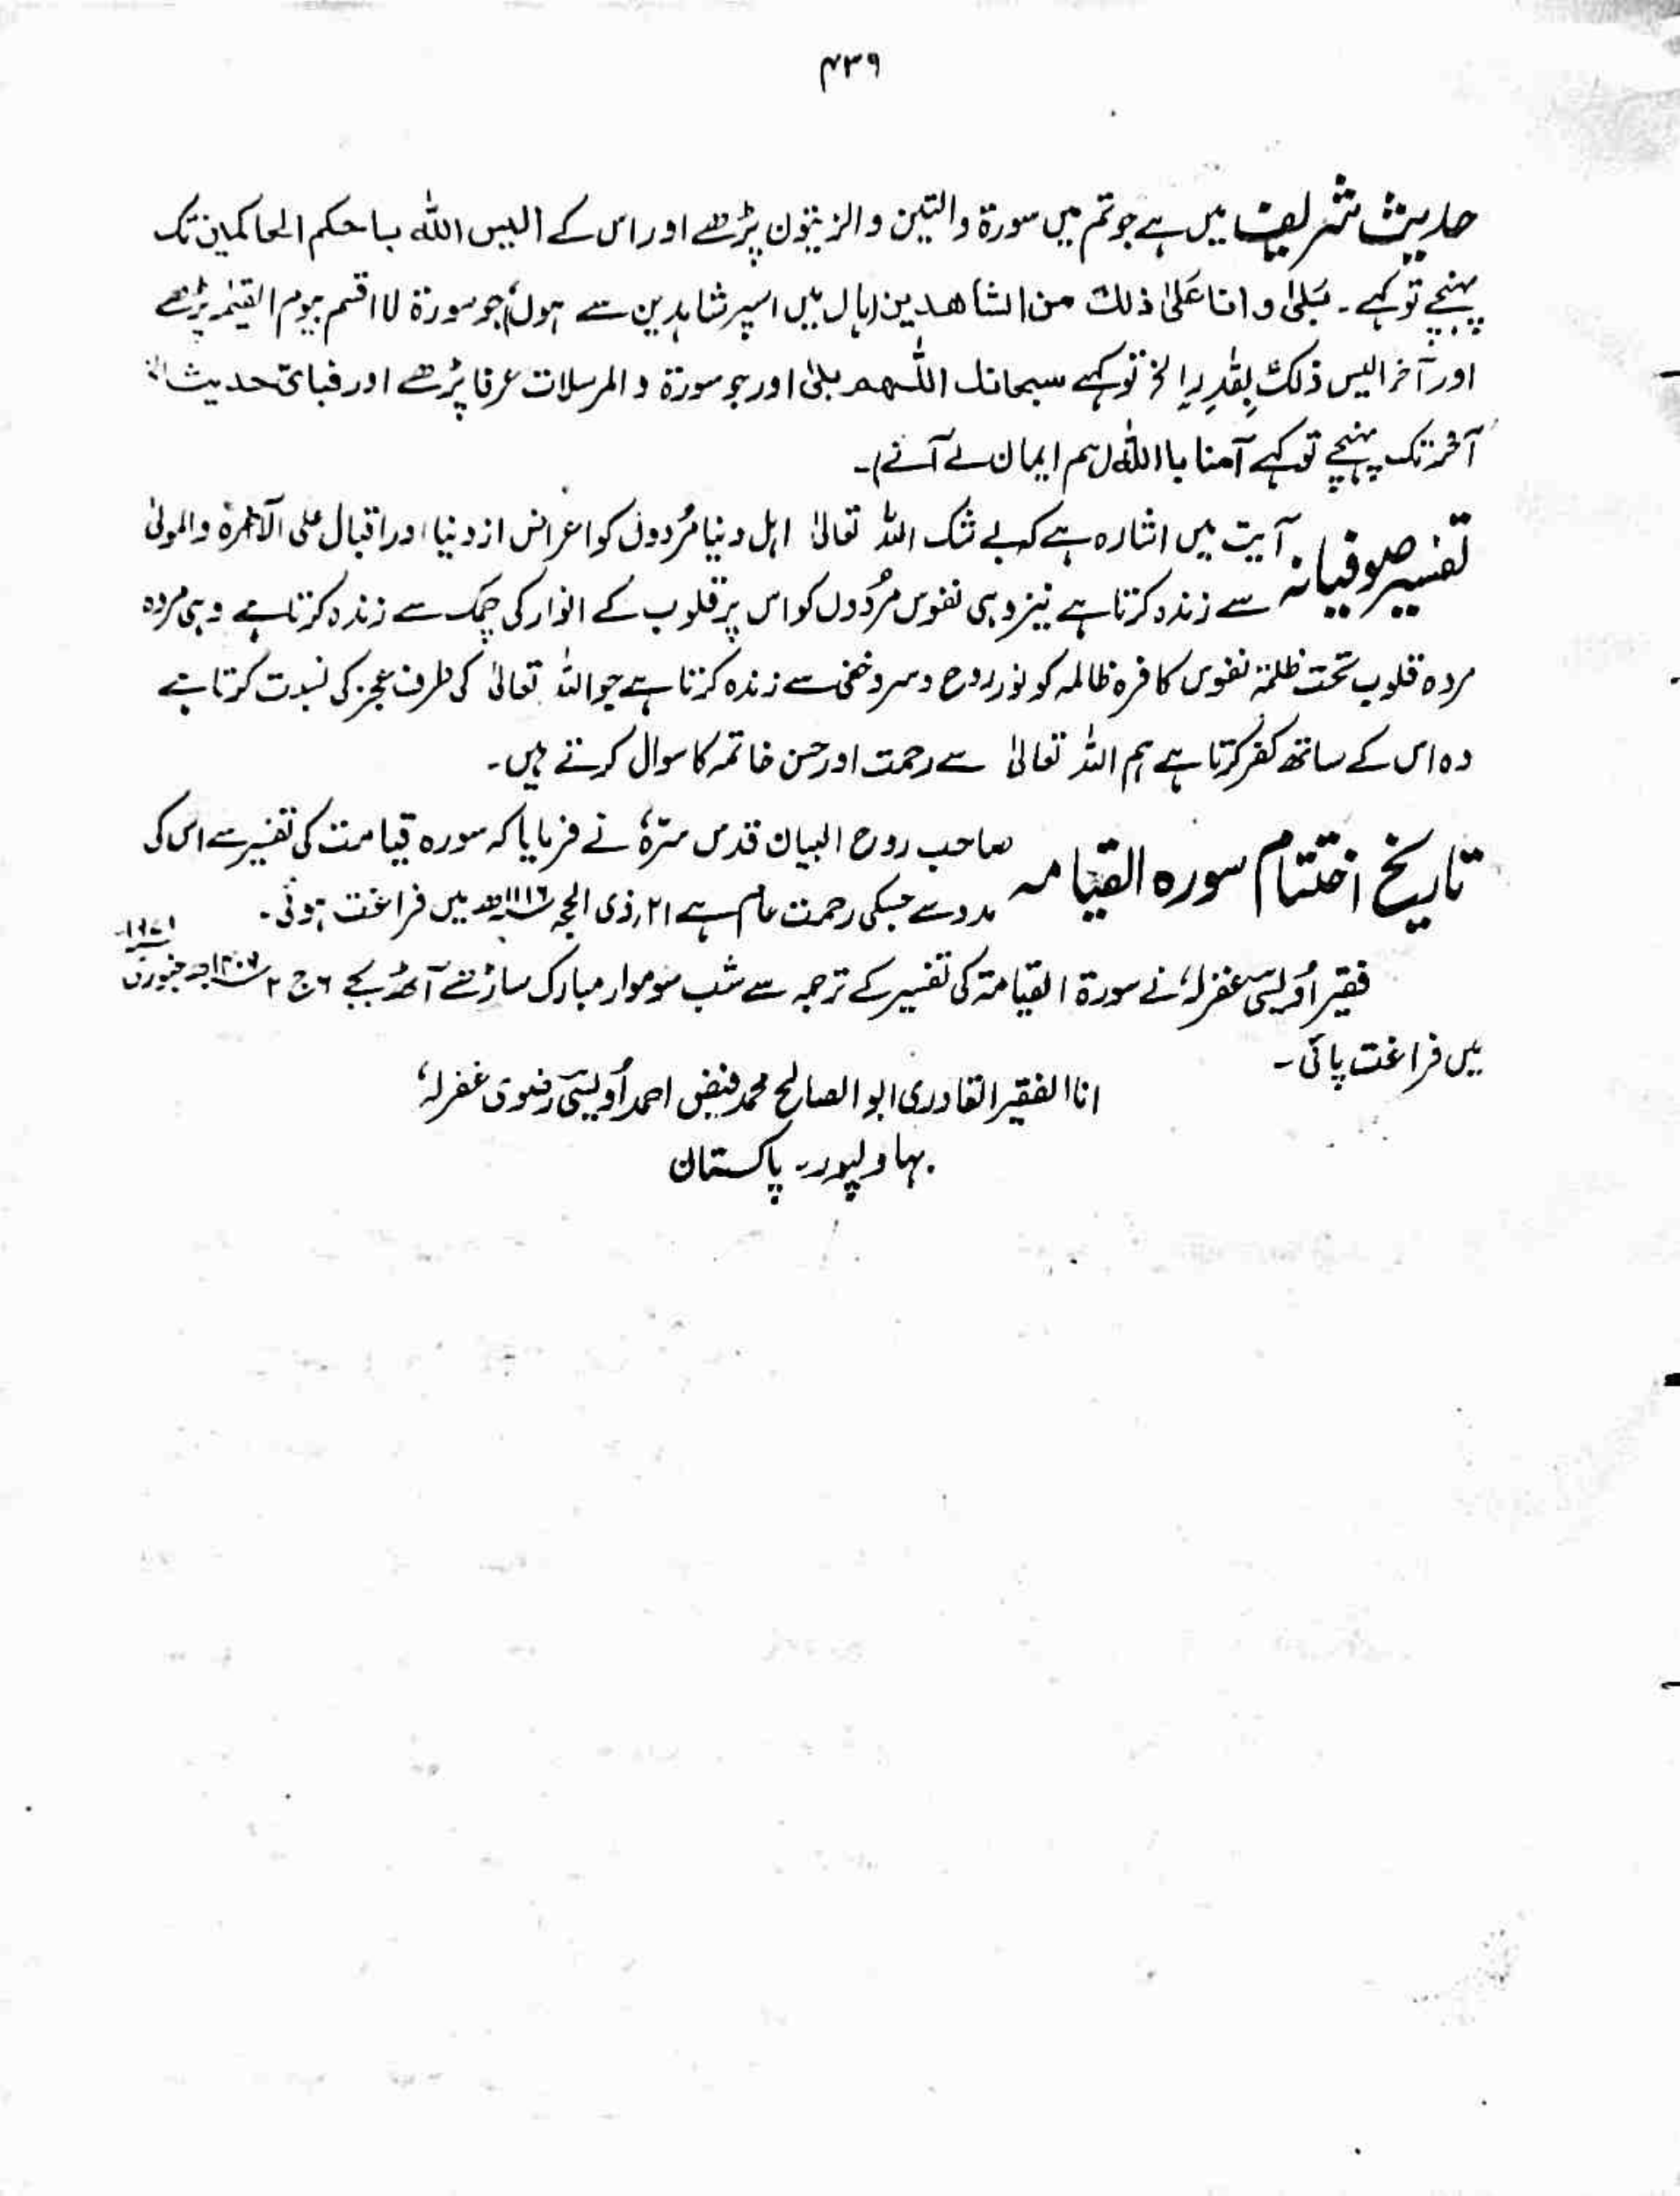 ۴۳۹
حدیث شریف میں ہے جو تم میں سورۃ والتین والزیتون پڑھے اور اس کے الیس اللہ باحکم الحاکمین تک
پہنچے تو کہے ۔ بَلیٰ وانا عَلیٰ ذلک من الشاھدین (ہاں میں اسپر شاہدین سے ہوں) جو سورۃ لا اقسم بیوم القیٰمۃ پڑھے
اور آخر الیس ذلک بِقٰدِرٍ الخ تو کہے سبحانک اللھم بلیٰ اور جو سورۃ والمرسلات عرفا پڑھے اور فبای حدیث الخ
آخر تک پہنچے تو کہے آمنا باللہ (ہم ایمان لے آئے)۔
تفسیر صوفیانہ آیت میں اشارہ ہے کہ بے شک اللہ تعالیٰ اہل دنیا مُردوں کو اعراض از دنیا اور اقبال علی الآخرۃ والمولیٰ
سے زندہ کرتا ہے نیز وہی نفوس مُردوں کو اس پر قلوب کے انوار کی چمک سے زندہ کرتا ہے وہی مردہ
مردہ قلوب تحت ظلمۃ نفوس کافرہ ظالمہ کو نور روح و سر و خفی سے زندہ کرتا ہے جو اللہ تعالیٰ کی طرف عجز کی نسبت کرتا ہے
وہ اس کے ساتھ کفر کرتا ہے ہم اللہ تعالیٰ سے رحمت اور حسن خاتمہ کا سوال کرتے ہیں۔
تاریخ اختتام سورہ القیامہ صاحب روح البیان قدس سرہٗ نے فرمایا کہ سورہ قیامت کی تفسیر سے اس کی
مدد سے جسکی رحمت عام ہے ۲۱ ذی الحجہ ۱۱۱۶ھ میں فراغت ہوئی۔
فقیر اُویسی غفرلہٗ نے سورۃ القیامۃ کی تفسیر کے ترجمہ سے شب سوموار مبارک ساڑھے آٹھ بجے ۶ ج ۲ جنوری
میں فراغت پائی۔
انا الفقیر القادری ابو الصالح محمد فیض احمد اُویسی رضوی غفرلہٗ
بہاولپور۔ پاکستان